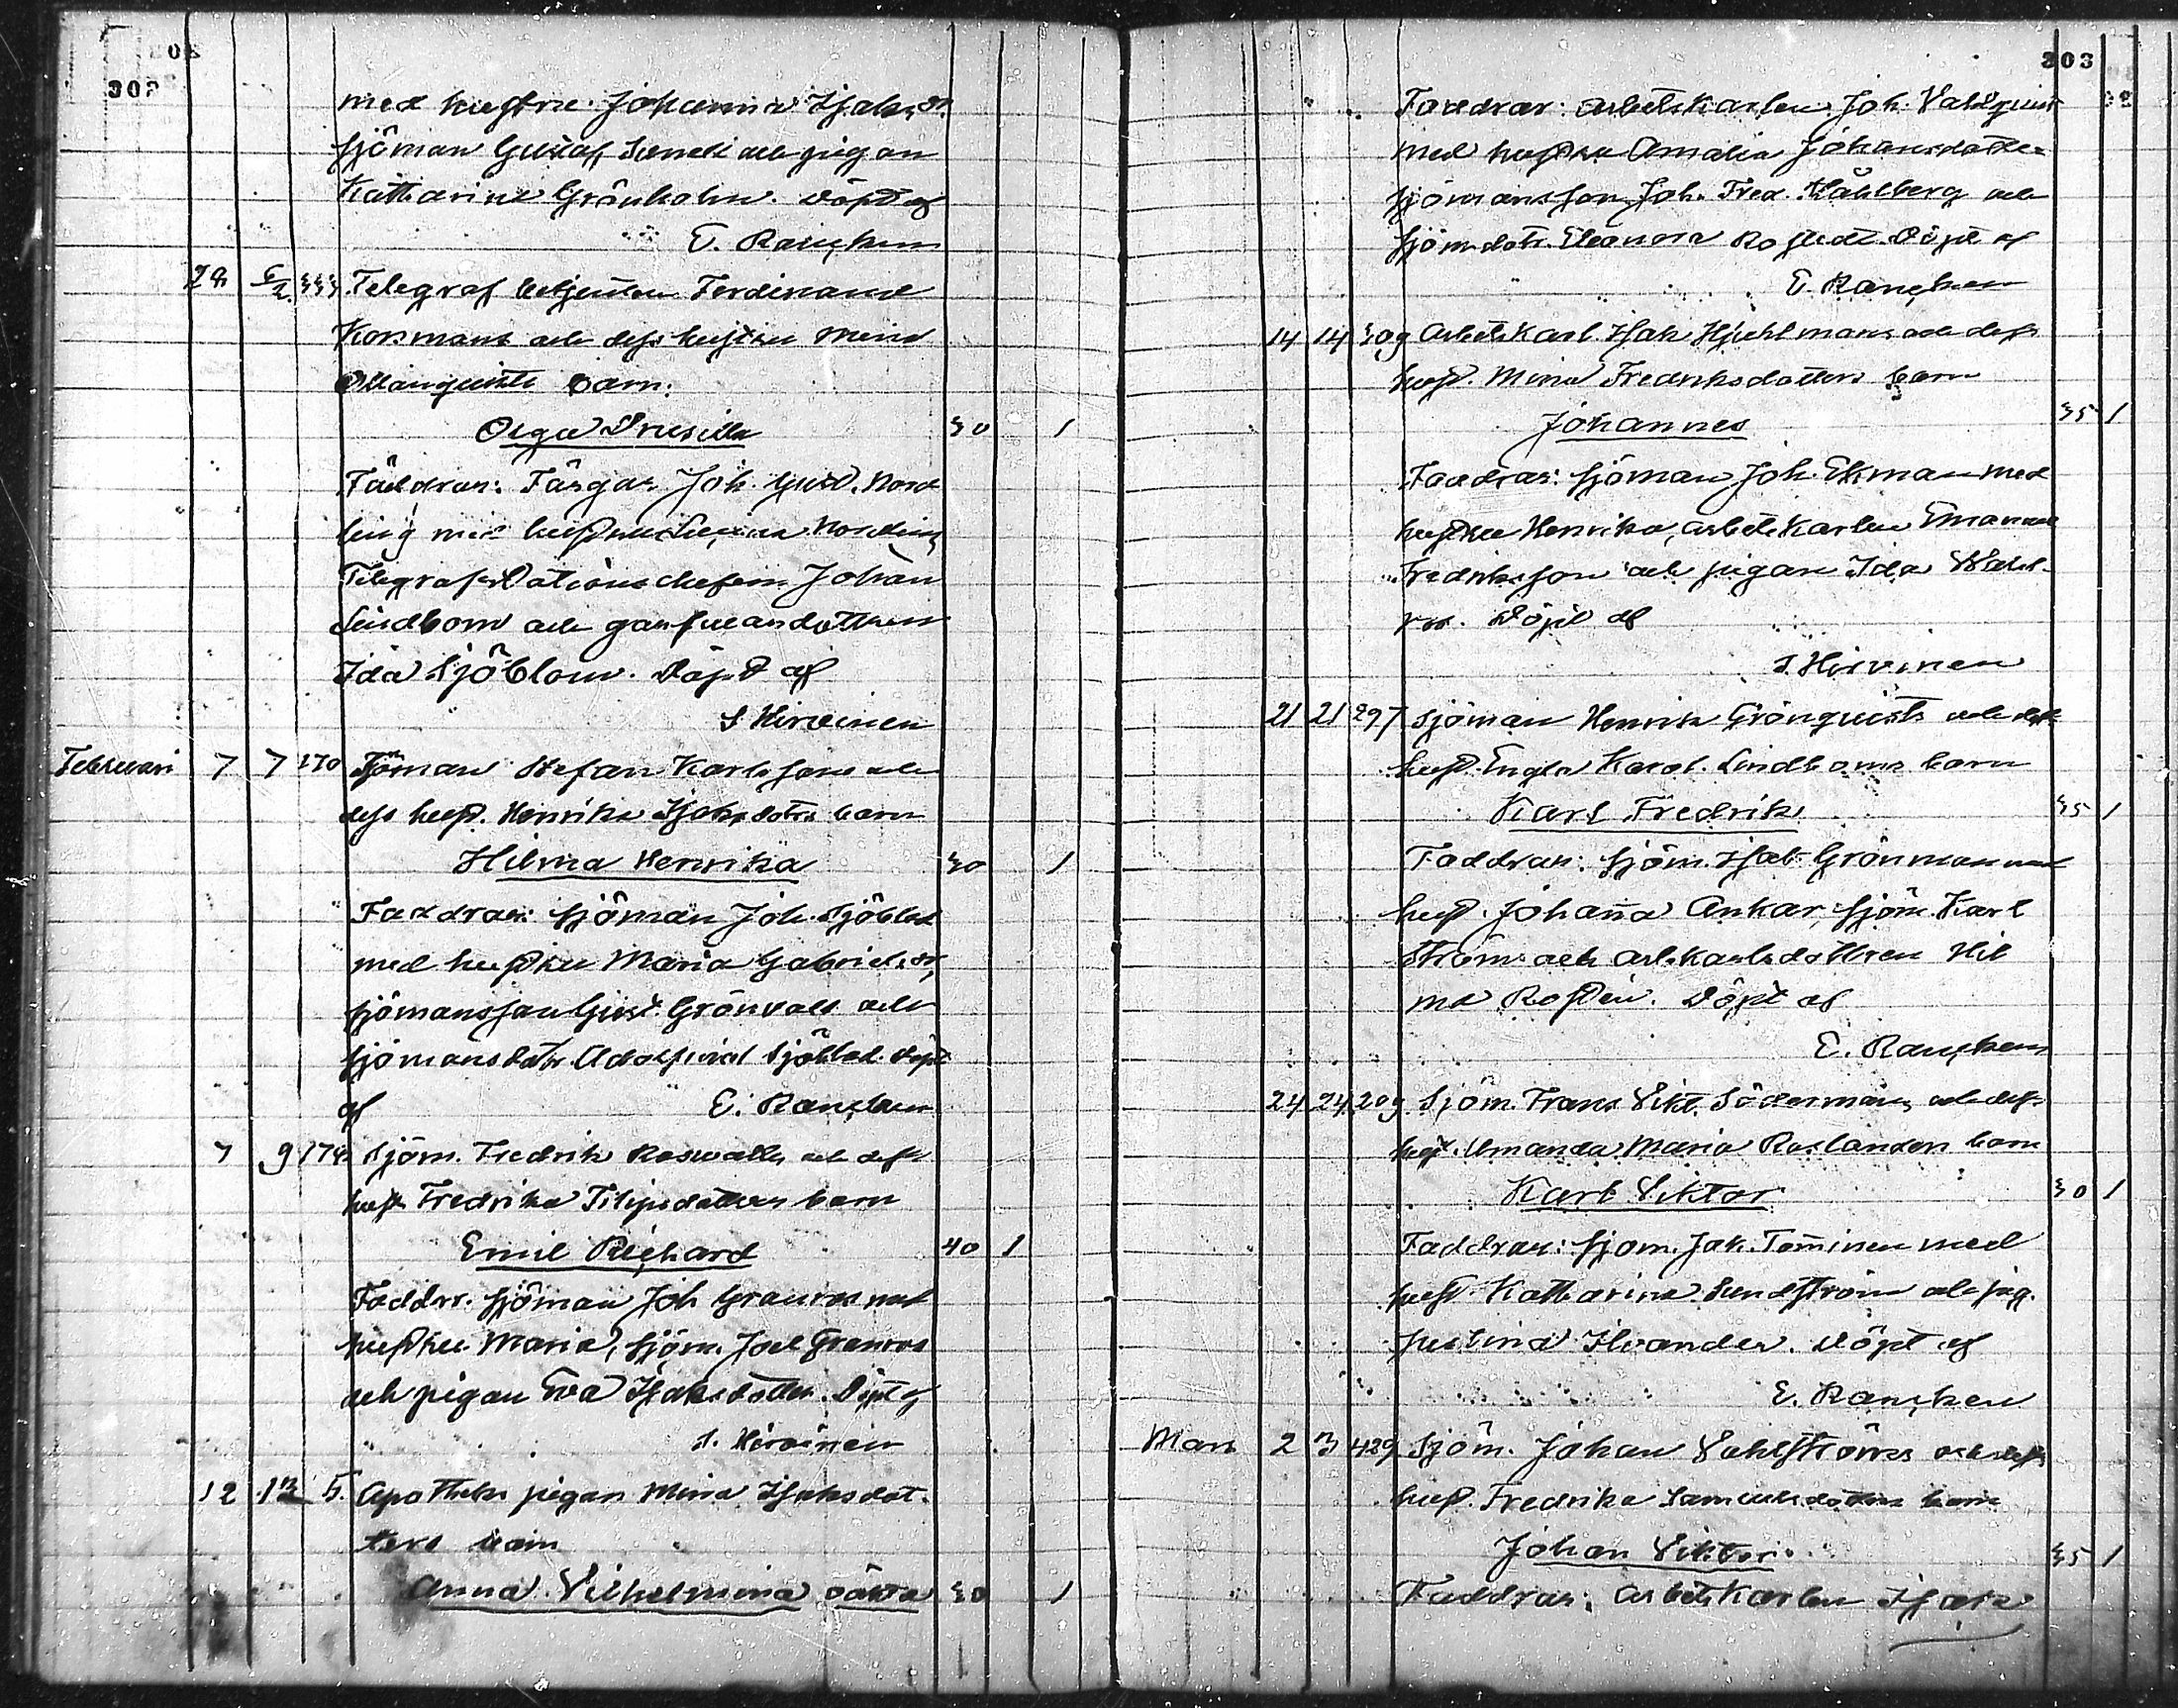 302
med hustru Johanna Isaksdr.
sjöman Gustaf och pigan
Katharina Grönholm. Döpt af
E. Rancken
24 5/2 333 Telegraf betjenten Ferdinand
Korsmans och dess hustru Mina
barn:
Olga Drusilla 30 1
Faddrar: Färgar. Joh. Gust. Nord
ling med hustru Nordling
Telegrafstationschefen Johan
Lindbom och garfvaredottren
Ida Sjöblom. Döpt af
S Hirvinen
Februari 7 7 270 Sjöman Stefan Karlssons och
dess hust. Henrika Isaksdotrs barn
Hilma Henrika 30 1
Faddrar: sjöman Joh. Sjöblad
med hustru Maria Gabrielsdr,
sjömansson Gust. Grönvall och
sjömansdotr Adolfina Sjöblad. Döpt
af E. Rancken
7 9 174 Sjöm. Fredrik Roswalls och dess
hust Fredrika Filipsdotters barn
Emil Richard 40 1
Faddrr. sjöman Joh Granros med
hustru Maria, sjöm. Joel Granros
och pigan Eva Isaksdotter. Döpt af
S. Hirvinen
12 12 5. Apotheks pigan Mina Isaksdot-
ters barn
Anna Vilhelmina oäkta 30 1
303
Faddrar: arbetskarlen Joh. Vahlquist
med hustru Amalia Johansdotter
sjömansson Joh. Fred. Wahlberg och
sjömdotr. Eleonora Rostedt. Döpt af
E. Rancken
14 14 309 Arbetskarl. Isak Hjuhlmans och dess
hust. Mina Fredriksdotters barn
Johannes 35 1
Faddrar: sjöman Joh. Ekman med
hustru Henrika, arbetskarlen Emanuel
Fredriksson och pigan Ida Wahl-
ros. Döpt af
S. Hirvinen
21 21 297 Sjöman Henrik Grönquists och dess
hust. Engla Karol. Lindboms barn
Karl Fredrik 35 1
Faddrar: sjöm. Isak Grönman med
hust. Johanna Ankar, sjöm. Karl
Ström och arb.karlsdottren Hil
ma Rostén. Döpt af
E. Rancken
24 24 209 Sjöm. Frans Vikt. Södermans och dess
hust. Amanda Maria Roslanders barn
Karl Viktor 30 1
Faddrar: sjom. Jak. Tominen med
hust. Katharina Sundström och pig.
Justina Ilvander. Döpt af
E. Rancken
Mars 2 3 429 Sjöm. Johan Vahlströms och dess
hust. Fredrika Samuelsdotters barn
Johan Viktor 35 1
Faddrar: arbetskarlen Isak